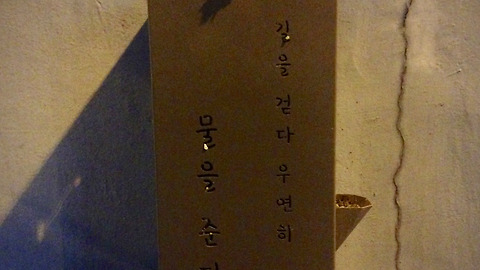 길을 걷다 우연히
물을 준